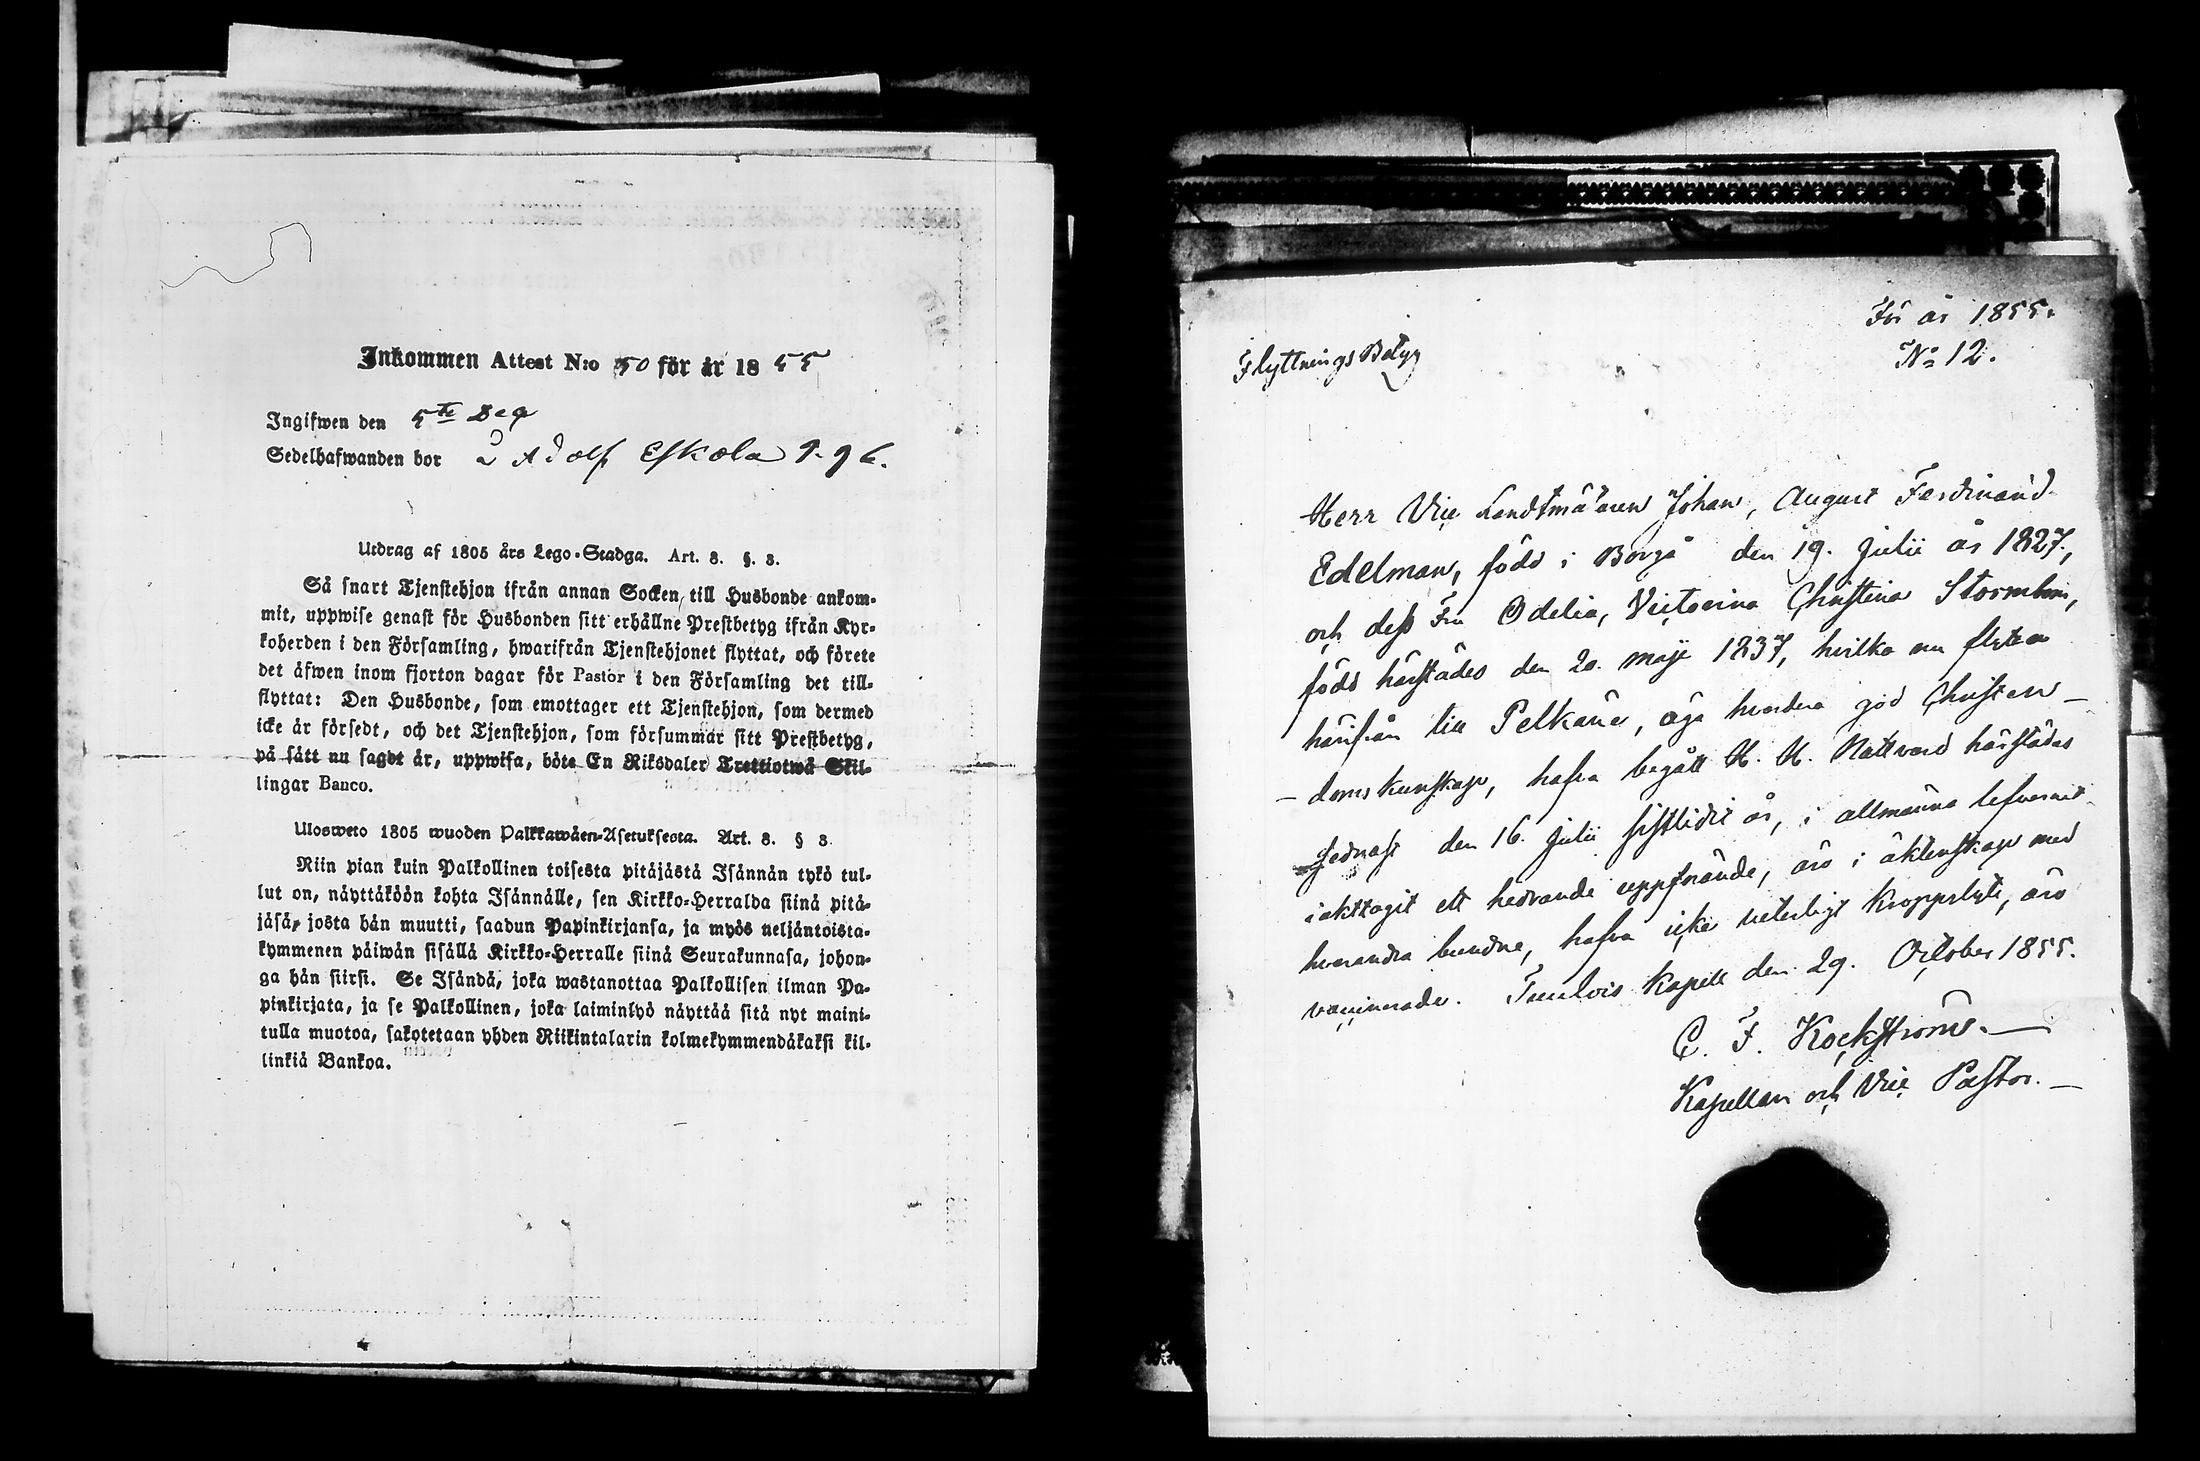 Inkommen Attest N:o 50 för år 1855
Ingifwen den 5te Dec
Sedelhafwanden bor å Adolf Eskola P. 96.
Utdrag af 1805 års Lego-Stadga. Art. 3. §. 3.
Så snart Tjenstehjon ifrån annan Socken, till Husbonde ankom-
mit, uppwise genast för Husbonden sitt erhållne Prestbetyg ifrån Kyr-
koherden i den Församling, hwarifrån Tjenstehjonet flyttat, och förete
det äfwen inom fjorton dagar för Pastor i den Församling det till-
flyttat: Den Husbonde, som emottager ett Tjenstehjon, som dermed
icke är försedt, och det Tjenstehjon, som försummar sitt Prestbetyg,
på sätt nu sagdt är, uppwisa, böte En Riksdaler Trettiotwå Skil-
lingar Banco.
Ulosweto 1805 wuoden Palkkawäen-Asetuksesta. Art. 3. § 3.
Niin pian kuin Palkollinen toisesta pitäjästä Isännän tykö tul-
lut on, näyttäköön kohta Isännälle, sen Kirkko-Herralda siinä pitä-
jäsä, josta hän muutti, saadun Papinkirjansa, ja myös neljäntoista-
kymmenen päiwän sisällä Kirkko-Herralle siinä Seurakunnasa, johon-
ga hän siirsi. Se Isändä, joka wastanottaa Palkollisen ilman Pa-
pinkirjata, ja se Palkollinen, joka laiminlyö näyttää sitä nyt maini-
tulla muotoa, sakotetaan yhden Riikintalarin kolmekymmendäkaksi kil-
linkiä Bankoa.
För år 1855.
No 12.
FlyttningsBetyg
Herr Vice Landtmätaren Johan, August Ferdinand
Edelman, född i Borgå den 19. Julii år 1827,
och dess Fru Odelia, Victorina Christina Stormbom,
född härstädes den 20. Maji 1837, hvilka nu flytta
härifrån till Pelkäne, äga hvardera god Christen-
- doms kunskap, hafva begått H. H. Nattvard härstädes
sednast den 16. Julii sistlidit år, i allmänna lefvernet
iakttagit ett hedrande uppförande, äro i äktenskap med
hvarandra bundne, hafva icke veterligt kroppslyte, äro
vaccinerade. Tuulois Kapell den 29. October 1855.
C. F. Kockström.
Kapellan och Vice Pastor.